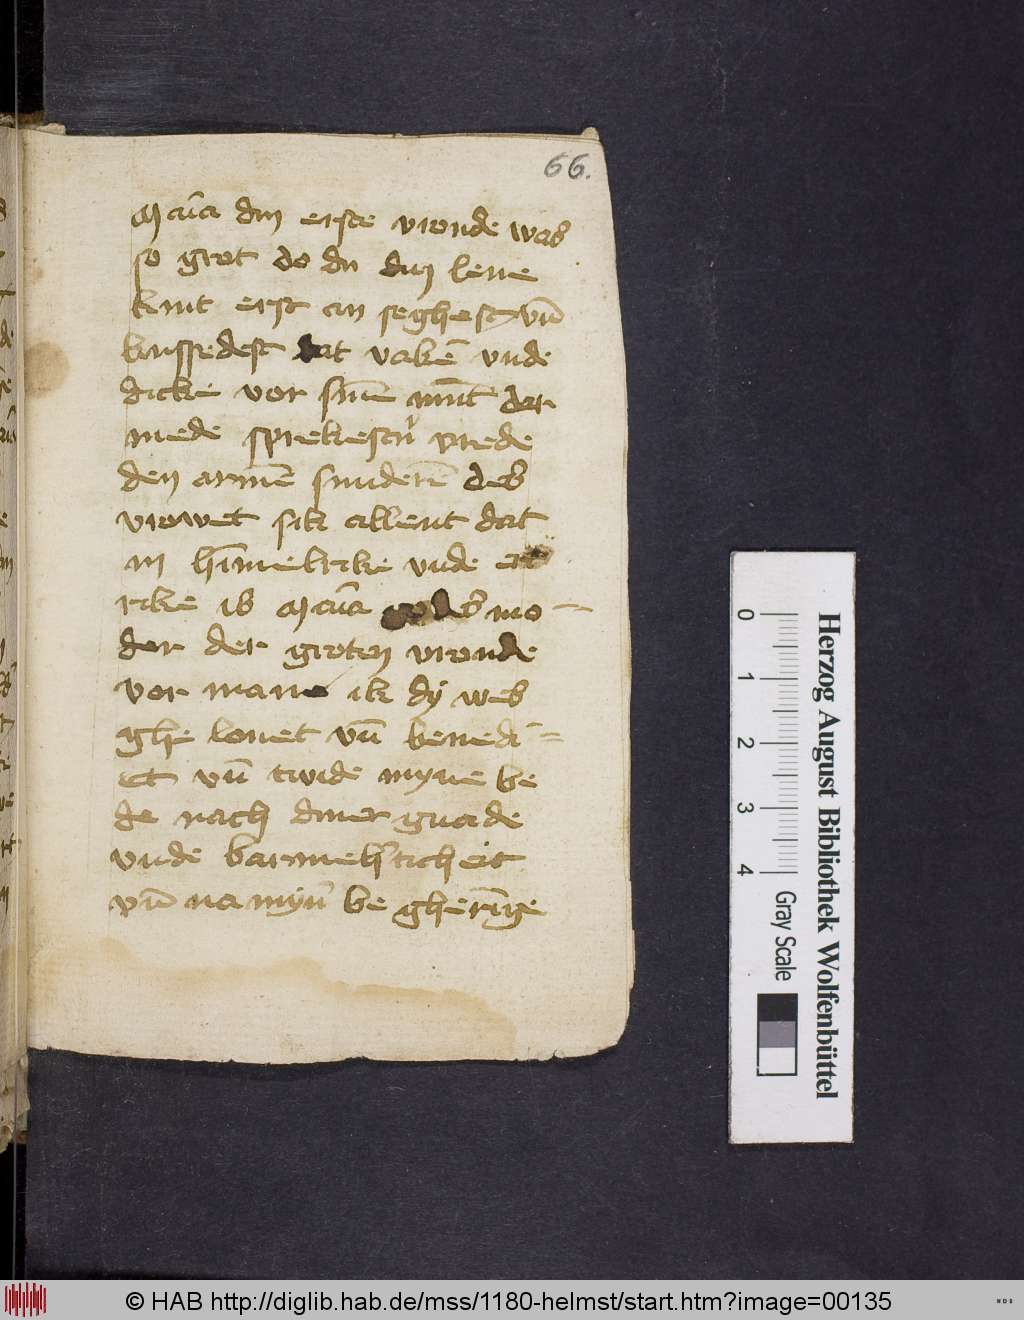 66.
Maria din erste vroude was
so grot do du din leue
kint erst an seghest vn̄
kussedest dat vakē vnde
dicke vor sinē mūt der
mede sprekestu vrede
den armē sunderē des
vrowet sik allent dat
in hīmelrike vnde er
rike is Maria godes mo
der der groten vroude
vor mane ik dÿ wes
ghe louet vn̄ benedi
et vn̄ twide myne be
de nach diner gnade
vnde barmeh'ticheit
vn̄ na myn' be gherīge
Herzog August Bibliothek Wolfenbüttel
0 1 2 3 4 Gray Scale
© HAB http://diglib.hab.de/mss/1180-helmst/start.htm?image=00135